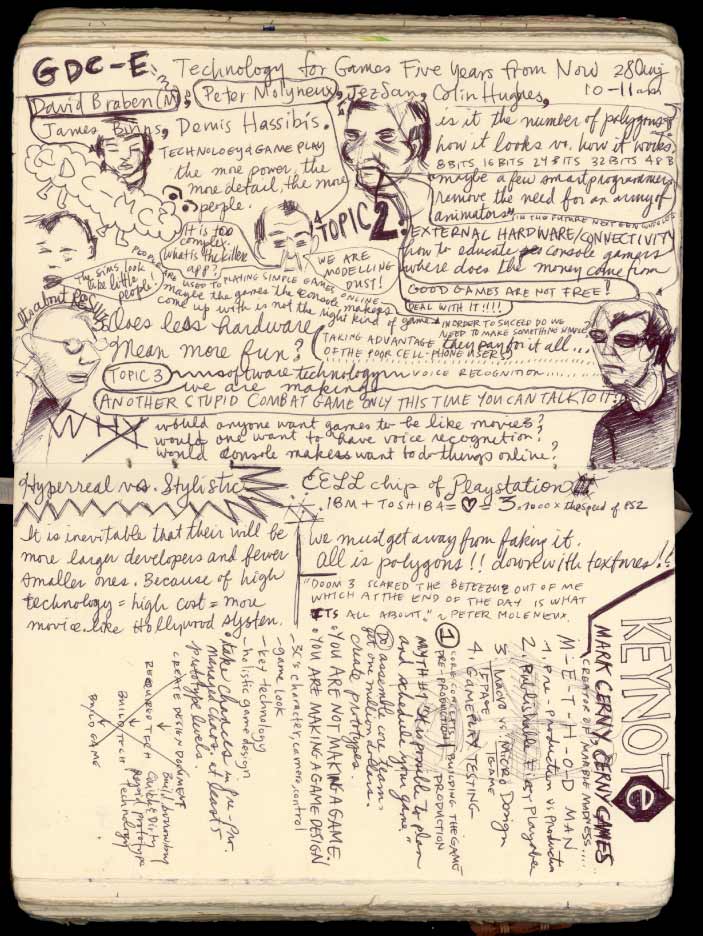 GDC-E Technology for Games Five Years from Now 28 Aug
10-11am
David Braben (M), Peter Molyneux, Jez San, Colin Hughes,
James Binns, Demis Hassibis.
TECHNOLOGY & GAME PLAY
the more power, the
more detail, the more
people.
GDC
is it the number of polygons
how it looks vs. how it works.
8 BITS 16 BITS 24 BITS 32 BITS
maybe a few smart programmers
remove the need for an army of
animators"
IN THE FUTURE
TOPIC 2:
EXTERNAL HARDWARE/CONNECTIVITY
how to educate console gamers
where does the money come from
GOOD GAMES ARE NOT FREE!
DEAL WITH IT!!!!
It is too
complex.
what is the killer
app?
WE ARE
MODELLING
DUST!
The sims, look
like little
people!
PEOPLE ARE USED TO PLAYING SIMPLE GAMES ONLINE
maybe the games the console makers
come up with is not the right kind of game.
IN ORDER TO SUCCEED DO WE
NEED TO MAKE SOMETHING SIMPLE
Its about
Does less hardware
Mean more fun?
TAKING ADVANTAGE they pay for it all...
OF THE POOR CELL-PHONE USERS
TOPIC 3 software technology VOICE RECOGNITION
we are making
ANOTHER STUPID COMBAT GAME ONLY THIS TIME YOU CAN TALK TO IT!
WHY would anyone want games to be like movies?
would one want to have voice recognition?
would console makers want to do things online?
Hyperreal vs. Stylistic
It is inevitable that their will be
more larger developers and fewer
smaller ones. Because of high
technology = high cost = more
movie like Hollywood system.
CELL chip of Playstation 3.
IBM + TOSHIBA = ♥ = 1000 x the speed of PS2
We must get away from faking it.
All is polygons!! down with textures!!
"DOOM 3 SCARED THE BETEEZUZ OUT OF ME
WHICH AT THE END OF THE DAY IS WHAT
ITS ALL ABOUT." ~ PETER MOLENEUX.
KEYNOTe
MARK CERNY, CERNY GAMES
CREATOR OF MARBLE MADNESS....
M-E-T-H-O-D MAN
1. Pre-Production vs. Production
2. Publishable First Playable
3. Macro vs. Micro Design
GAME
4. GAMEPLAY TESTING
1
CORE CONCEPTS BUILDING THE GAME
PRE-PRODUCTION PRODUCTION
MYTH #1 "It is possible to plan
and schedule your game."
DO assemble core team,
get one million dollars.
create prototypes.
YOU ARE NOT MAKING A GAME
YOU ARE MAKING A GAME DESIGN!
- 3C's character, camera, control
- game look
- key technology
- holistic game design
take chances in pre-pro.
managed chaos, at least 5
prototype levels.
CREATE DESIGN DOCUMENT
REQUIRED TECH
BUILD TECH
BUILD GAME
Build
Quick & Dirty
Rapid prototype
Technology